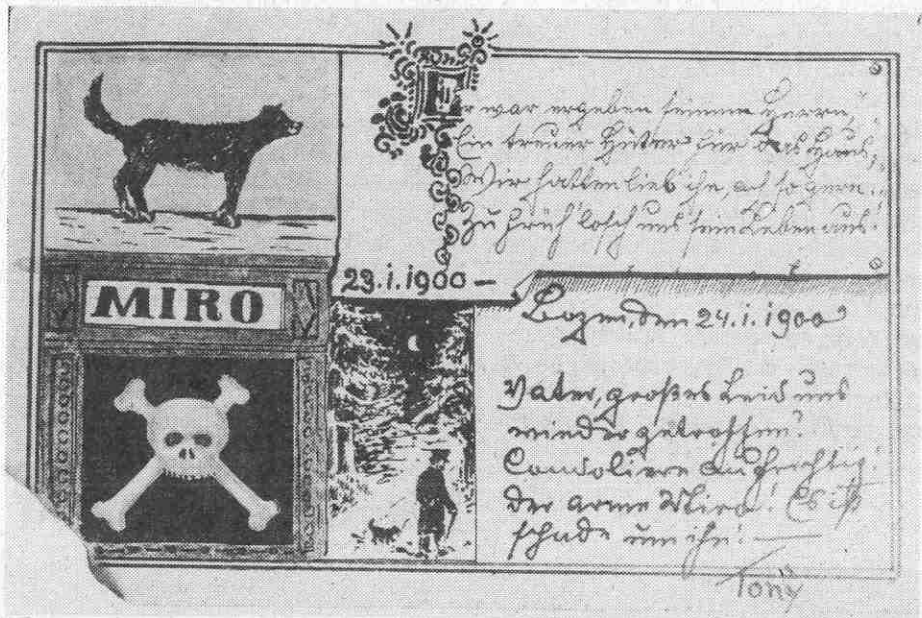 Er war ergeben seinem Herrn,
Ein treuer Hüter für das Haus,
Wir hatten lieb ihn, ach so gern.
Zu früh losch uns sein Leben aus!
23.i.1900 –
MIRO
Bozen, den 24.i.1900
Vater, großes Leid uns
wieder getroffen!
Condoliere aufrichtig!
Der arme Miro! Es ist
schade um ihn! —
Tony